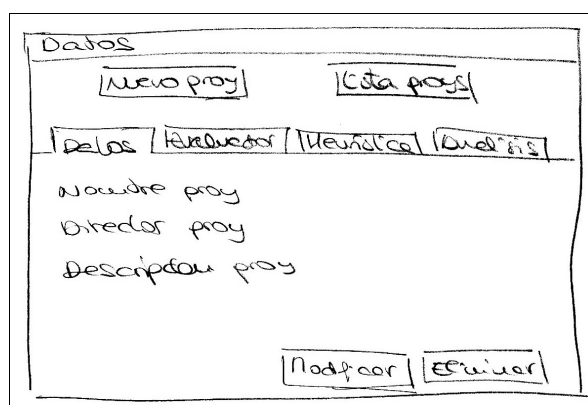 Datos
Nuevo proy Lista proys
Datos Evaluador Heurística Análisis
Nombre proy
Director proy
Descripción proy
Modificar Eliminar